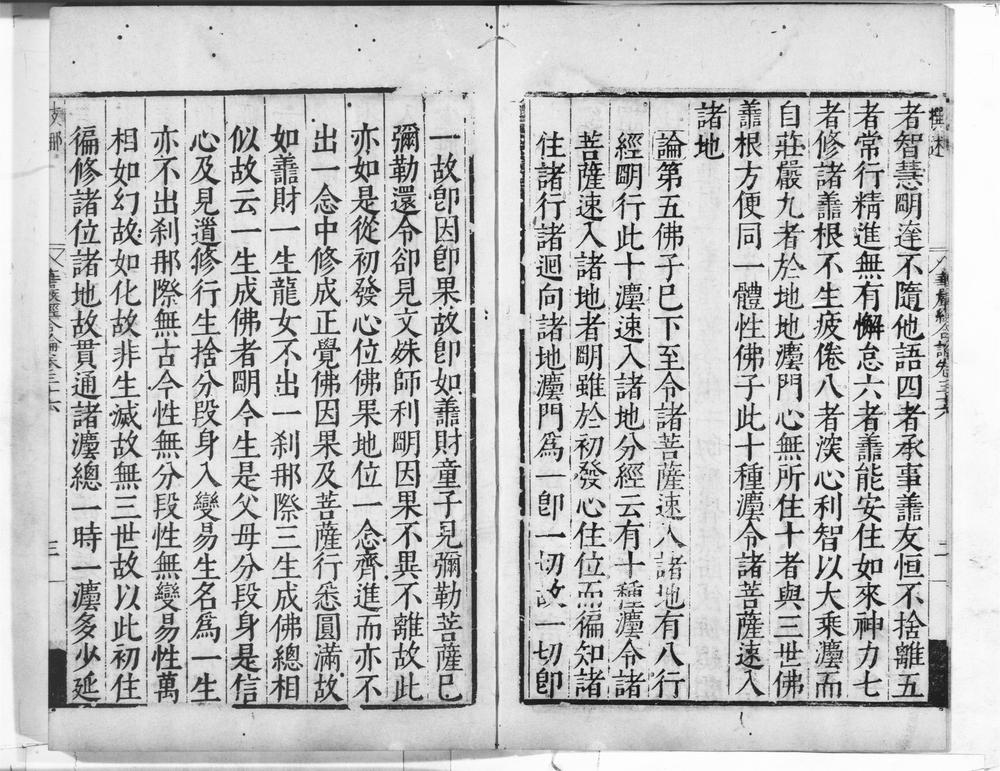 者智慧明達不隨他語四者承事善友恒不捨離五
者常行精進無有懈怠六者善能安住如來神力七
者修諸善根不生疲倦八者深心利智以大乘灋而
自莊嚴九者於地地灋門心無所住十者與三世佛
善根方便同一體性佛子此十種灋令諸菩薩速入
諸地
論第五佛子已下至令諸菩薩速入諸地有八行
經明行此十灋速入諸地分經云有十種灋令諸
菩薩速入諸地者明雖於初發心住位而徧知諸
住諸行諸迴向諸地灋門為一即一切故一切即
華嚴經合論卷三十六
三
一故即因即果故即如善財童子見彌勒菩薩已
彌勒還令卻見文殊師利明因果不異不離故此
亦如是從初發心位佛果地位一念齊進而亦不
出一念中修成正覺佛因果及菩薩行悉圓滿故
如善財一生龍女不出一剎那際三生成佛總相
似故云一生成佛者明今生是父母分段身是信
心及見道修行生捨分段身入變易生名為一生
亦不出剎那際無古今性無分段性無變易性萬
相如幻故如化故非生滅故無三世故以此初住
徧修諸位諸地故貫通諸灋總一時一灋多少延